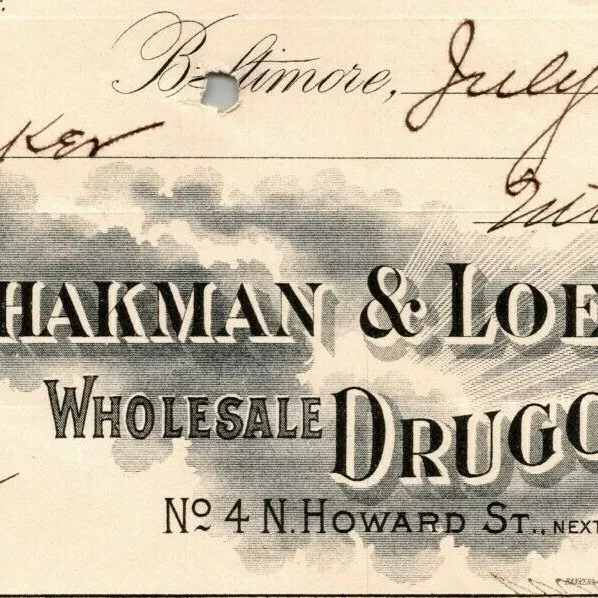 Baltimore, July
ker
HAKMAN & LOE
WHOLESALE DRUGG
No 4 N. HOWARD ST., NEXT